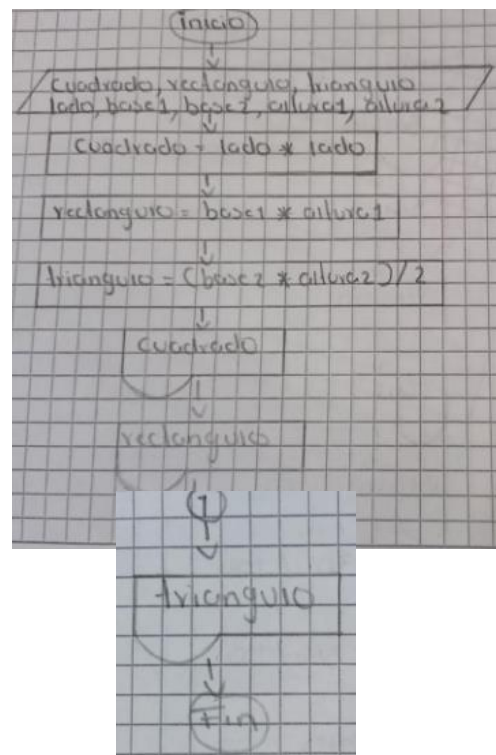 inicio
cuadrado, rectangulo, triangulo
lado, base1, base2, altura1, altura2
cuadrado = lado * lado
rectangulo = base1 * altura1
triangulo = (base2 * altura2)/2
cuadrado
rectangulo
1
triangulo
Fin